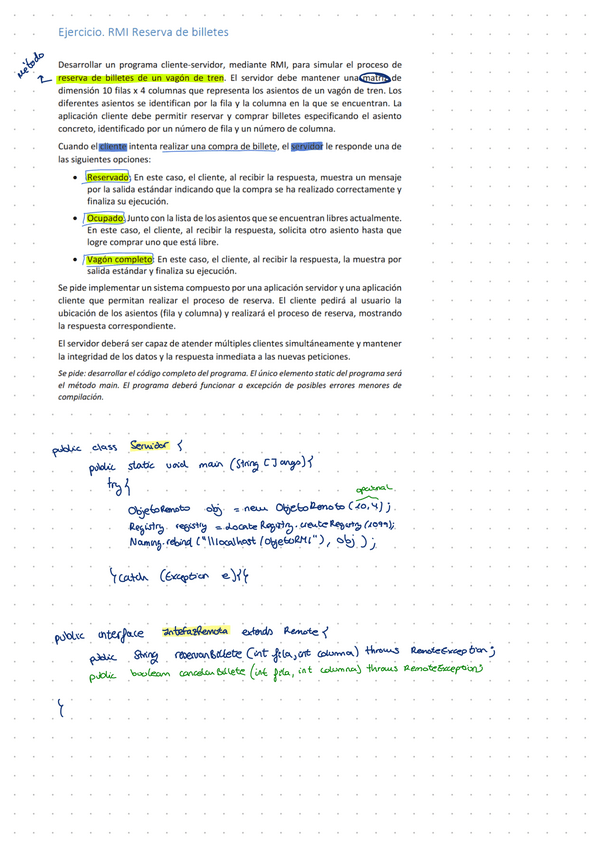 Ejercicio. RMI Reserva de billetes
método
Desarrollar un programa cliente-servidor, mediante RMI, para simular el proceso de
reserva de billetes de un vagón de tren. El servidor debe mantener una matriz de
dimensión 10 filas x 4 columnas que representa los asientos de un vagón de tren. Los
diferentes asientos se identifican por la fila y la columna en la que se encuentran. La
aplicación cliente debe permitir reservar y comprar billetes especificando el asiento
concreto, identificado por un número de fila y un número de columna.
Cuando el cliente intenta realizar una compra de billete, el servidor le responde una de
las siguientes opciones:
• Reservado: En este caso, el cliente, al recibir la respuesta, muestra un mensaje
por la salida estándar indicando que la compra se ha realizado correctamente y
finaliza su ejecución.
• Ocupado: Junto con la lista de los asientos que se encuentran libres actualmente.
En este caso, el cliente, al recibir la respuesta, solicita otro asiento hasta que
logre comprar uno que está libre.
• Vagón completo: En este caso, el cliente, al recibir la respuesta, la muestra por
salida estándar y finaliza su ejecución.
Se pide implementar un sistema compuesto por una aplicación servidor y una aplicación
cliente que permitan realizar el proceso de reserva. El cliente pedirá al usuario la
ubicación de los asientos (fila y columna) y realizará el proceso de reserva, mostrando
la respuesta correspondiente.
El servidor deberá ser capaz de atender múltiples clientes simultáneamente y mantener
la integridad de los datos y la respuesta inmediata a las nuevas peticiones.
Se pide: desarrollar el código completo del programa. El único elemento static del programa será
el método main. El programa deberá funcionar a excepción de posibles errores menores de
compilación.
public class Servidor {
public static void main (String [] args) {
try {
opcional
ObjetoRemoto obj = new ObjetoRemoto (10,4) ;
Registry registry = LocateRegistry.createRegistry (1099);
Naming.rebind ("//localhost/ObjetoRMI" ), obj ) ;
} catch (Exception e) {} }
public interface InterfazRemota extends Remote {
public String reservarBillete (int fila, int columna) throws RemoteException ;
public boolean cancelarBillete (int fila, int columna) throws RemoteException;
}